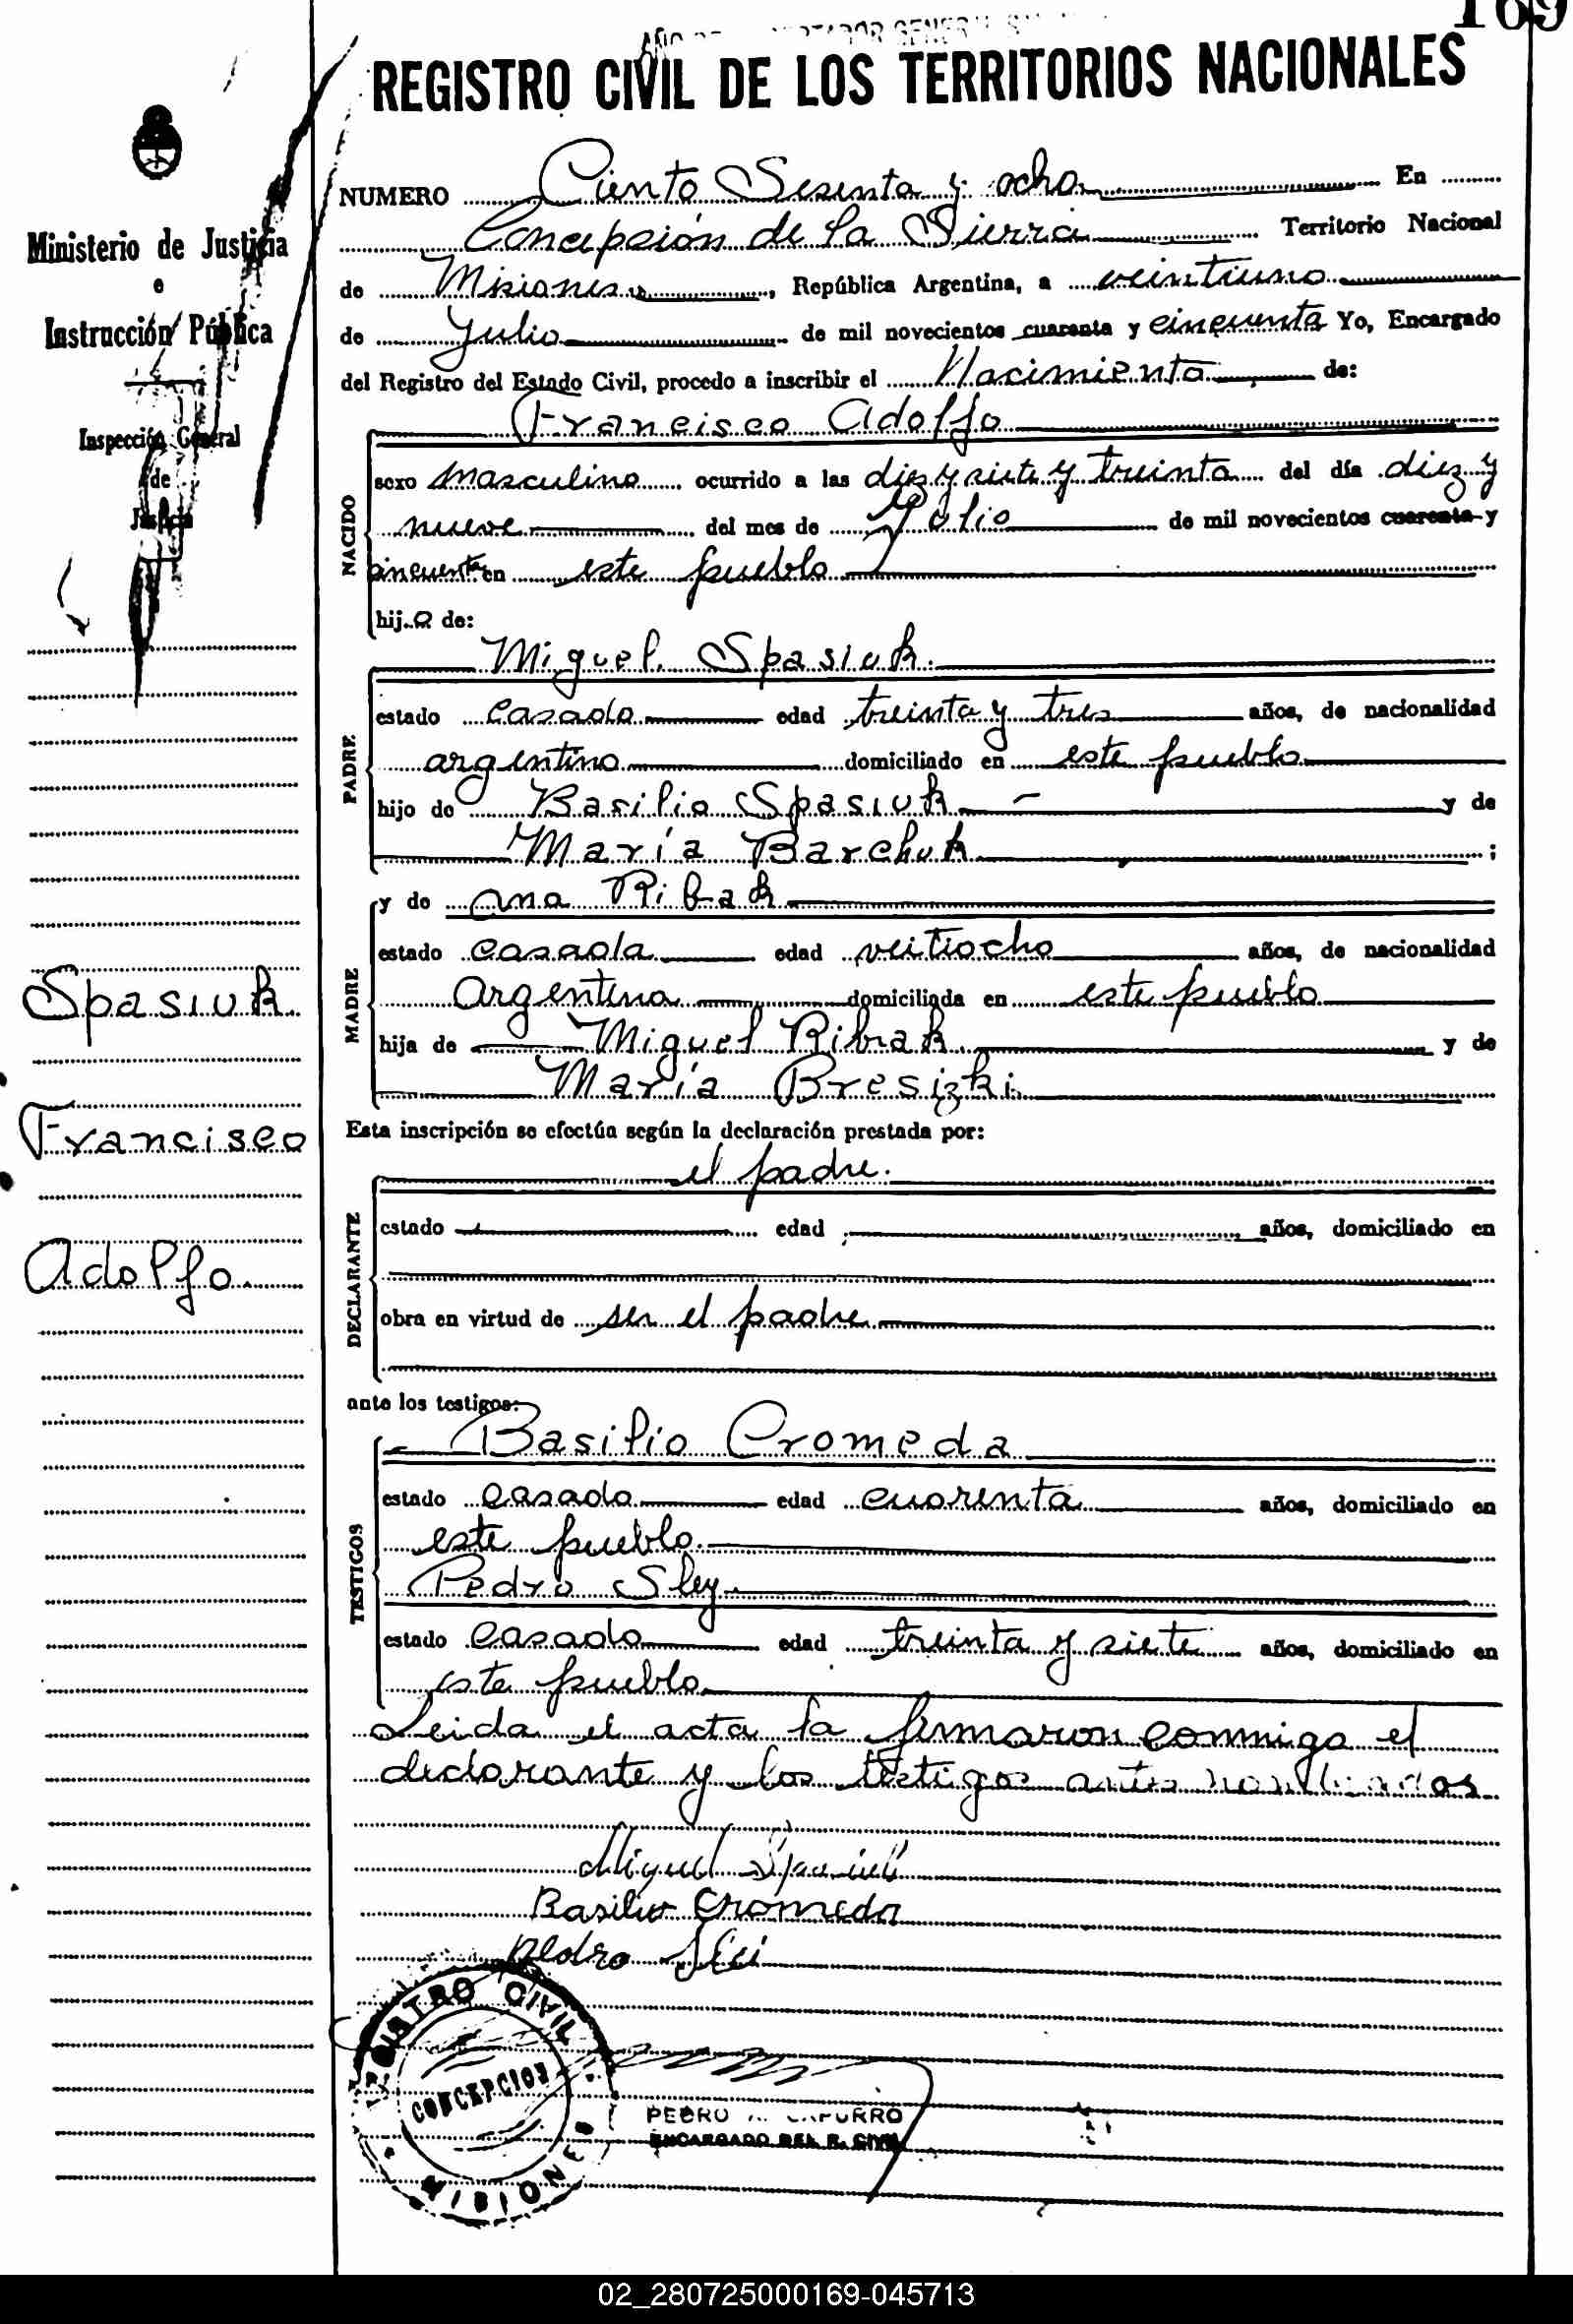 169
AÑO DEL LIBERTADOR GENERAL SAN
REGISTRO CIVIL DE LOS TERRITORIOS NACIONALES
Ministerio de Justicia
e
Instrucción Pública
Inspección General
de
Justicia
Spasiuk.
Francisco
Adolfo.
NUMERO Ciento Sesenta y ocho En
Concepción de la Sierra Territorio Nacional
de Misiones, República Argentina, a veintiuno
de Julio de mil novecientos cuarenta y cincuenta Yo, Encargado
del Registro del Estado Civil, procedo a inscribir el Nacimiento de:
Francisco Adolfo
NACIDO
sexo masculino ocurrido a las diez y siete y treinta del día diez y
nueve del mes de Julio de mil novecientos cuarenta y
cincuenta en este pueblo
hijo de:
Miguel Spasiuk.
PADRE
estado casado edad treinta y tres años, de nacionalidad
argentino domiciliado en este pueblo
hijo de Basilio Spasiuk y de
María Barchuk ;
MADRE
y de Ana Ribak
estado casada edad veitiocho años, de nacionalidad
Argentina domiciliada en este pueblo
hija de Miguel Ribak. y de
María Bresizki.
Esta inscripción se efectúa según la declaración prestada por:
el padre.
DECLARANTE
estado edad años, domiciliado en
obra en virtud de ser el padre
ante los testigos:
TESTIGOS
Basilio Cromeda
estado casado edad cuarenta años, domiciliado en
este pueblo.
Pedro Sley
estado casado edad treinta y siete años, domiciliado en
este pueblo
Leida el acta la firmaron conmigo el
declarante y los testigos antes nombrados
Miguel Spasiuk
Basilio Cromeda
Pedro Slei
REGISTRO CIVIL
CONCEPCION
MISIONES
PEDRO
ENCARGADO DEL R. CIVIL
02_280725000169-045713